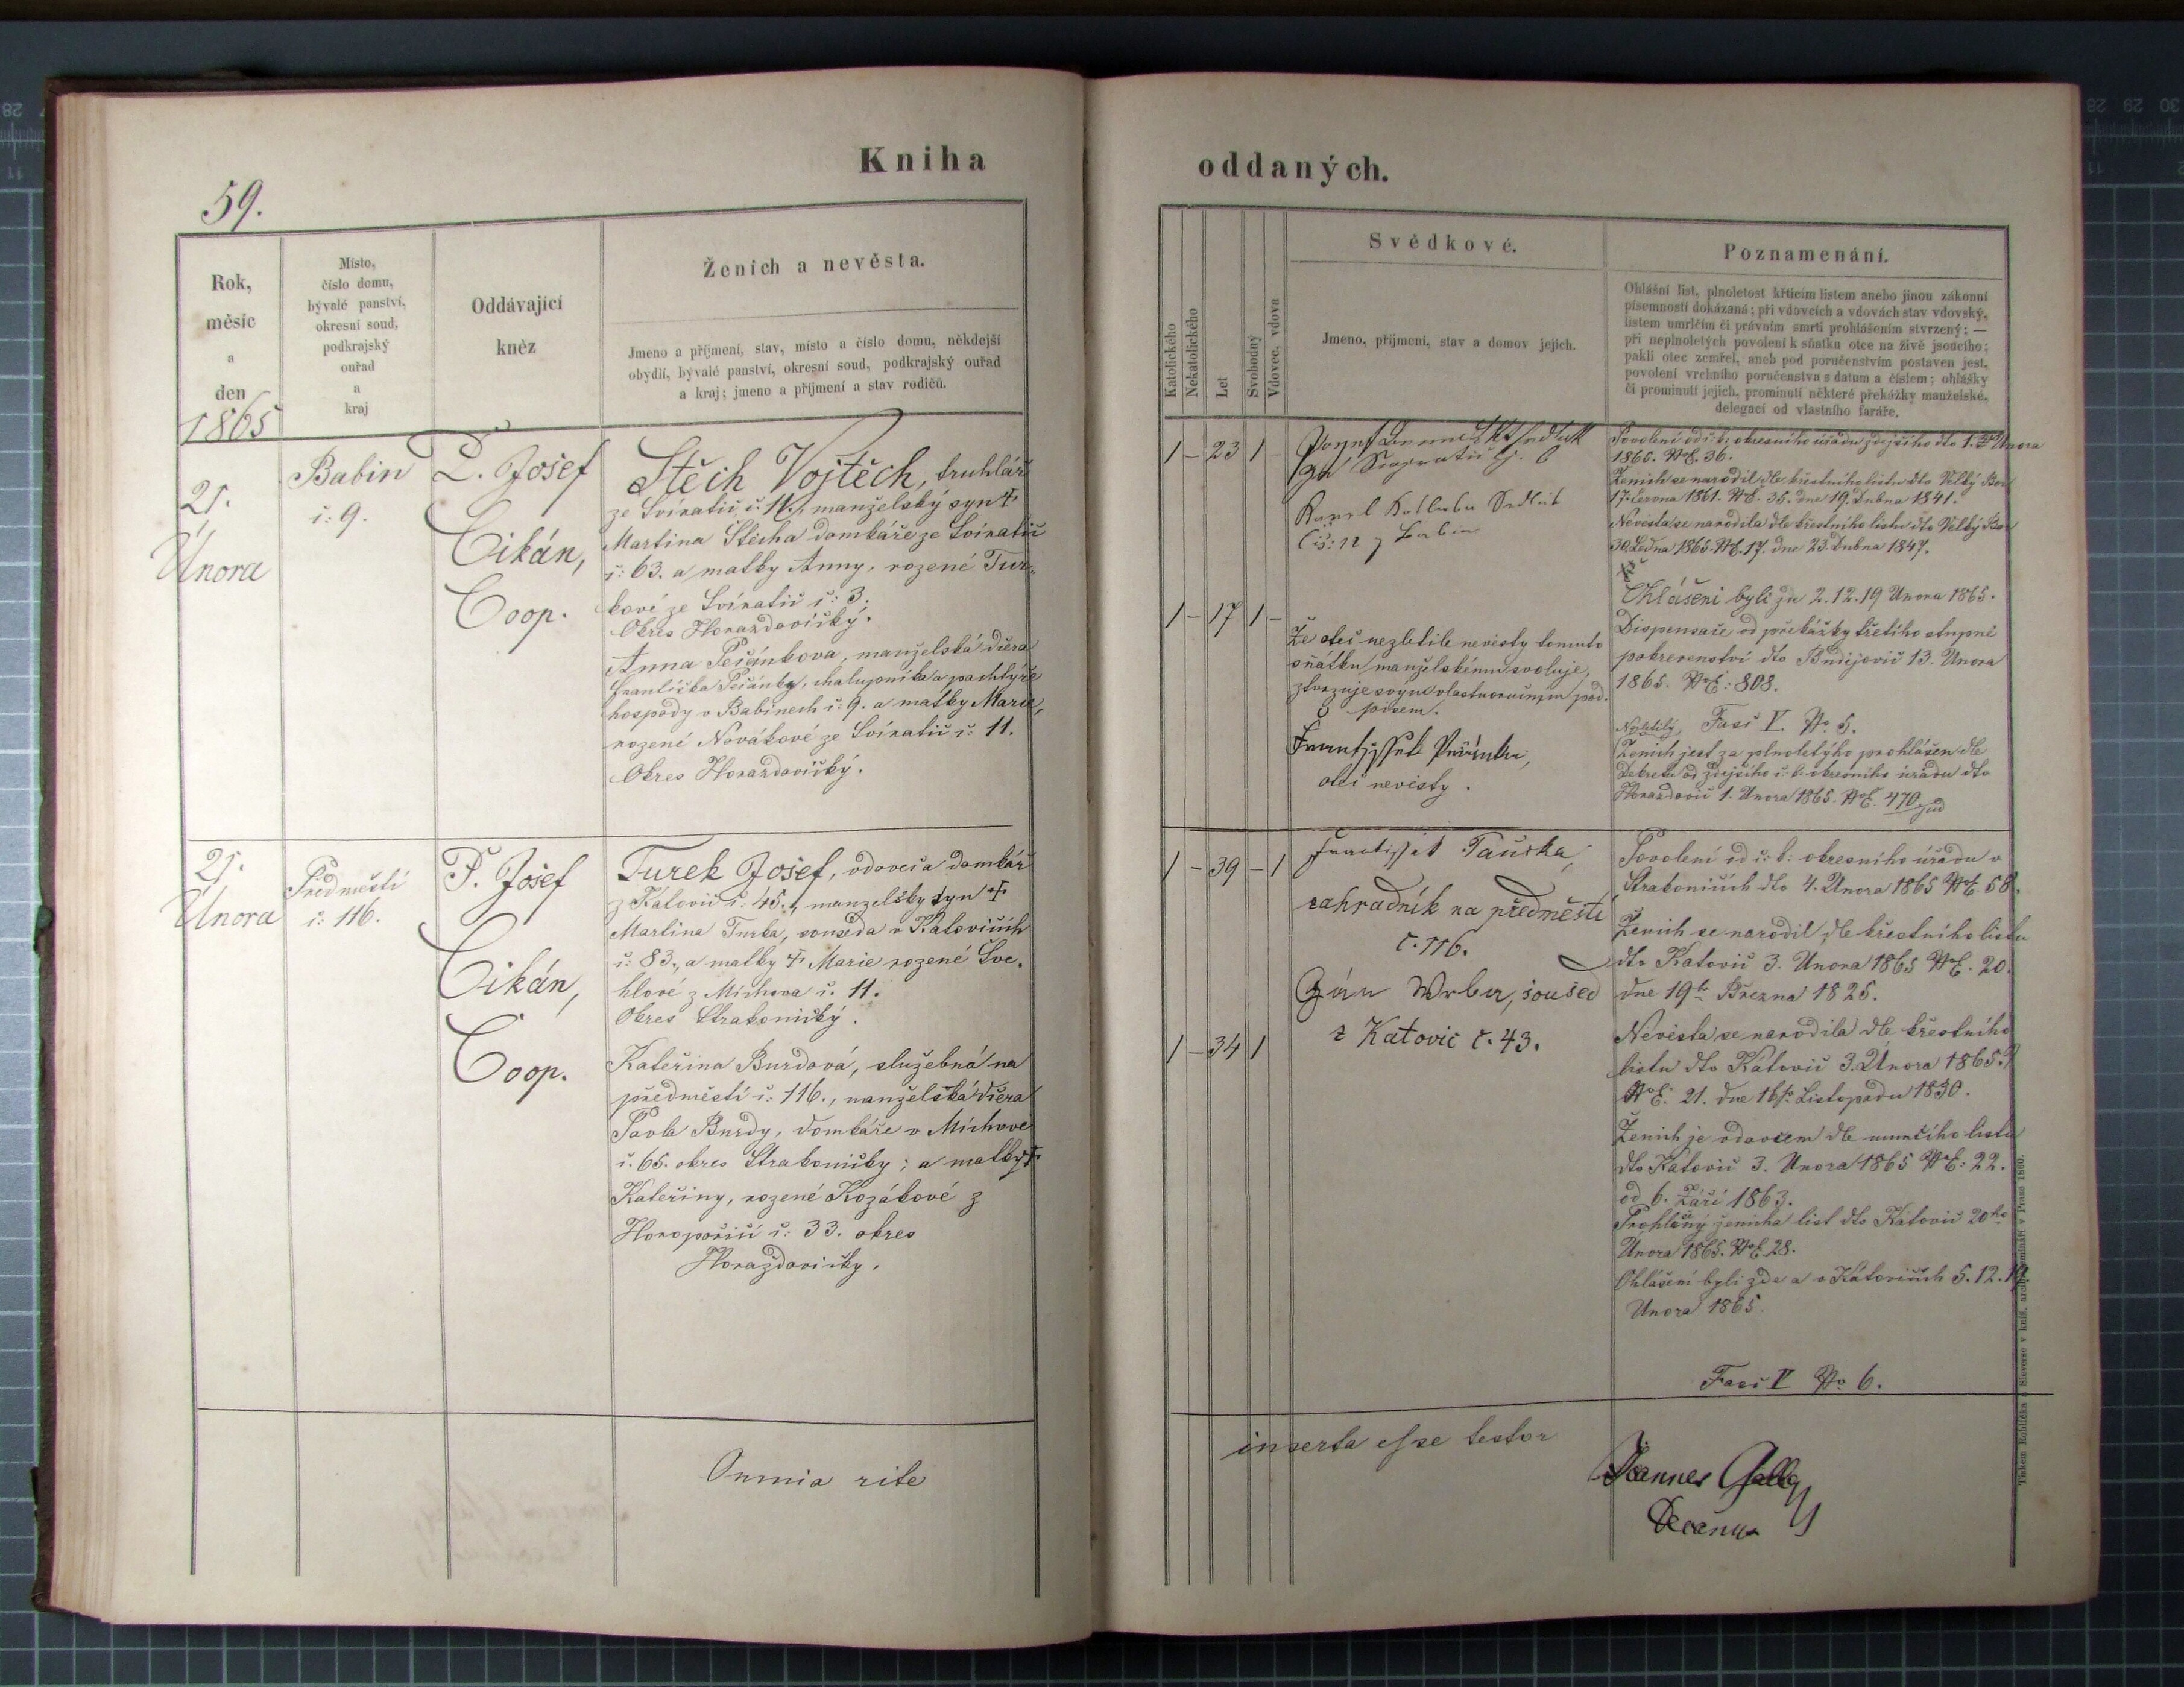 Kniha
59.
Rok,
měsíc
a
den
1865
Místo,
číslo domu,
bývalé panství,
okresní soud,
podkrajský
ouřad
a
kraj
Oddávající
kněz
Ženich a nevěsta.
Jmeno a příjmení, stav, místo a číslo domu, někdejší
obydlí, bývalé panství, okresní soud, podkrajský ouřad
a kraj; jmeno a příjmení a stav rodičů.
21.
Února
Babin
č: 9.
P. Josef
Cikán,
Coop.
Stěch Vojtěch, truhlář
ze Svíratic, č: 11., manželský syn †
Martina Štěcha domkáře ze Svíratic
č: 63. a matky Anny, rozené Tur-
kové ze Svíratic č: 3.
Okres Horazdovický.
Anna Pešánkova, manželská dcera
Františka Pešánky, chalupníka a pachtýře
hospody v Babinech č: 9. a matky Marie,
rozené Novákové ze Svíratic č: 11.
Okres Horazdovický.
21.
Února
Předměstí
č: 116.
P. Josef
Cikán,
Coop.
Turek Josef, vdovec a domkář
z Katovic č: 45., manzelsky syn †
Martina Turka, souseda v Katovicích
č: 83., a matky † Marie rozené Šve-
hlové z Míchova č. 11.
Okres Strakonický.
Kateřina Burdová, služebná na
předměstí č: 116., manželská dcera
Pavla Burdy, domkáře v Míchově
č. 65. okres Strakonický; a matky †
Kateřiny, rozené Kozákové z
Horopořičí č: 33. okres
Horazdovický.
Omnia rite
oddaných.
Katolického
Nekatolického
Let
Svobodný
Vdovec, vdova
Svědkové.
Jmeno, příjmení, stav a domov jejich.
Poznamenání.
Ohlášní list, plnoletost křticím listem anebo jinou zákonní
písemností dokázaná; při vdovcích a vdovách stav vdovský,
listem umrlčím či právním smrti prohlášením stvrzený; —
při neplnoletých povolení k sňatku otce na živě jsoucího;
pakli otec zemřel, aneb pod poručenstvím postaven jest,
povolení vrchního poručenstva s datum a číslem; ohlášky
či prominutí jejich, prominutí některé překážky manželské,
delegací od vlastního faráře.
1 - 23 1 -
Josef
Karel Kotlaba Sedlák
Čis: 12 z Babin
1 - 17 1 -
Že otec nezletilé nevěsty tomuto
sňátku manželskému svoluje,
stvrzuje svým vlastnoručným pod-
pisem.
Frantyssek Pessanka,
otec nevěsty.
Povolení od c: k: okresního úřadu zdejšího dto 1. Února
1865. NE. 36.
Ženich se narodil dle křestního listu dto Velký Bor
17. Června 1861. NE. 35. dne 19. Dubna 1841.
Nevěsta se narodila dle křestního listu dto Velký Bor
30. Ledna 1865. NE. 17. dne 23. Dubna 1847.
Ohlášeni byli zde 2. 12. 19 Února 1865.
Dispensace od překážky třetího stupně
pokrevenství dto Budějovic 13. Února
1865. NE: 808.
Fasc V. No 5.
Ženich jest za plnoletýho prohlášen dle
Dekretu od zdejšího c: k: okresního úřadu dto
Horazdovic 1. Února 1865. NE. 470 jud
1 - 39 - 1
Frantissek Pauska,
zahradník na předměstí
č. 116.
Jan Wrba, soused
z Katovic č. 43.
1 - 34 1
Povolení od c: k: okresního úřadu v
Strakonicích dto 4. Února 1865 NE. 58.
Ženich se narodil dle křestního listu
dto Katovic 3. Února 1865 NE. 20.
dne 19ho Března 1825.
Nevěsta se narodila dle křestního
listu dto Katovic 3. Února 1865.
NE: 21. dne 16ho Listopadu 1830.
Ženich je vdovcem dle umrčího listu
dto Katovic 3. Února 1865 NE: 22.
od 6. Září 1863.
ženicha list dto Katovic 20ho
Února 1865. NE 28.
Ohlášeni byli zde a v Katovicích 5. 12. 19.
Února 1865.
Fasc V No 6.
inserta esse testor
Joannes Galley
Decanus